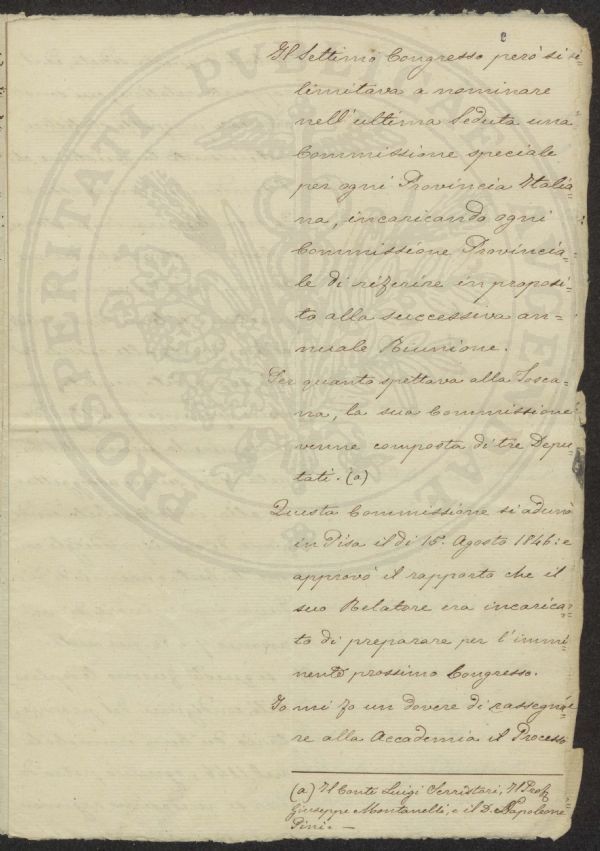 Il Settimo Congresso però si
limitava a nominare
nell'ultima Seduta una
Commissione speciale
per ogni Provincia Italia=
na, incaricando ogni
Commissione Provincia=
le di riferire in proposi=
to alla successiva an=
nuale Riunione.
Per quanto spettava alla Tosca=
na, la sua Commissione
venne composta di tre Depu=
tati. (a)
Questa Commissione si adunò
in Pisa il dì 15. Agosto 1846: e
approvò il rapporto che il
suo Relatore era incarica=
to di preparare per l'immi=
nente prossimo Congresso.
Io mi fo un dovere di rassegna=
re alla Accademia il Processo
(a) Il Conte Luigi Serristori, Il Prof.
Giuseppe Montanelli, e il D. Napoleone
Pini. —
PROSPERITATI PUBLICAE AUGENDAE